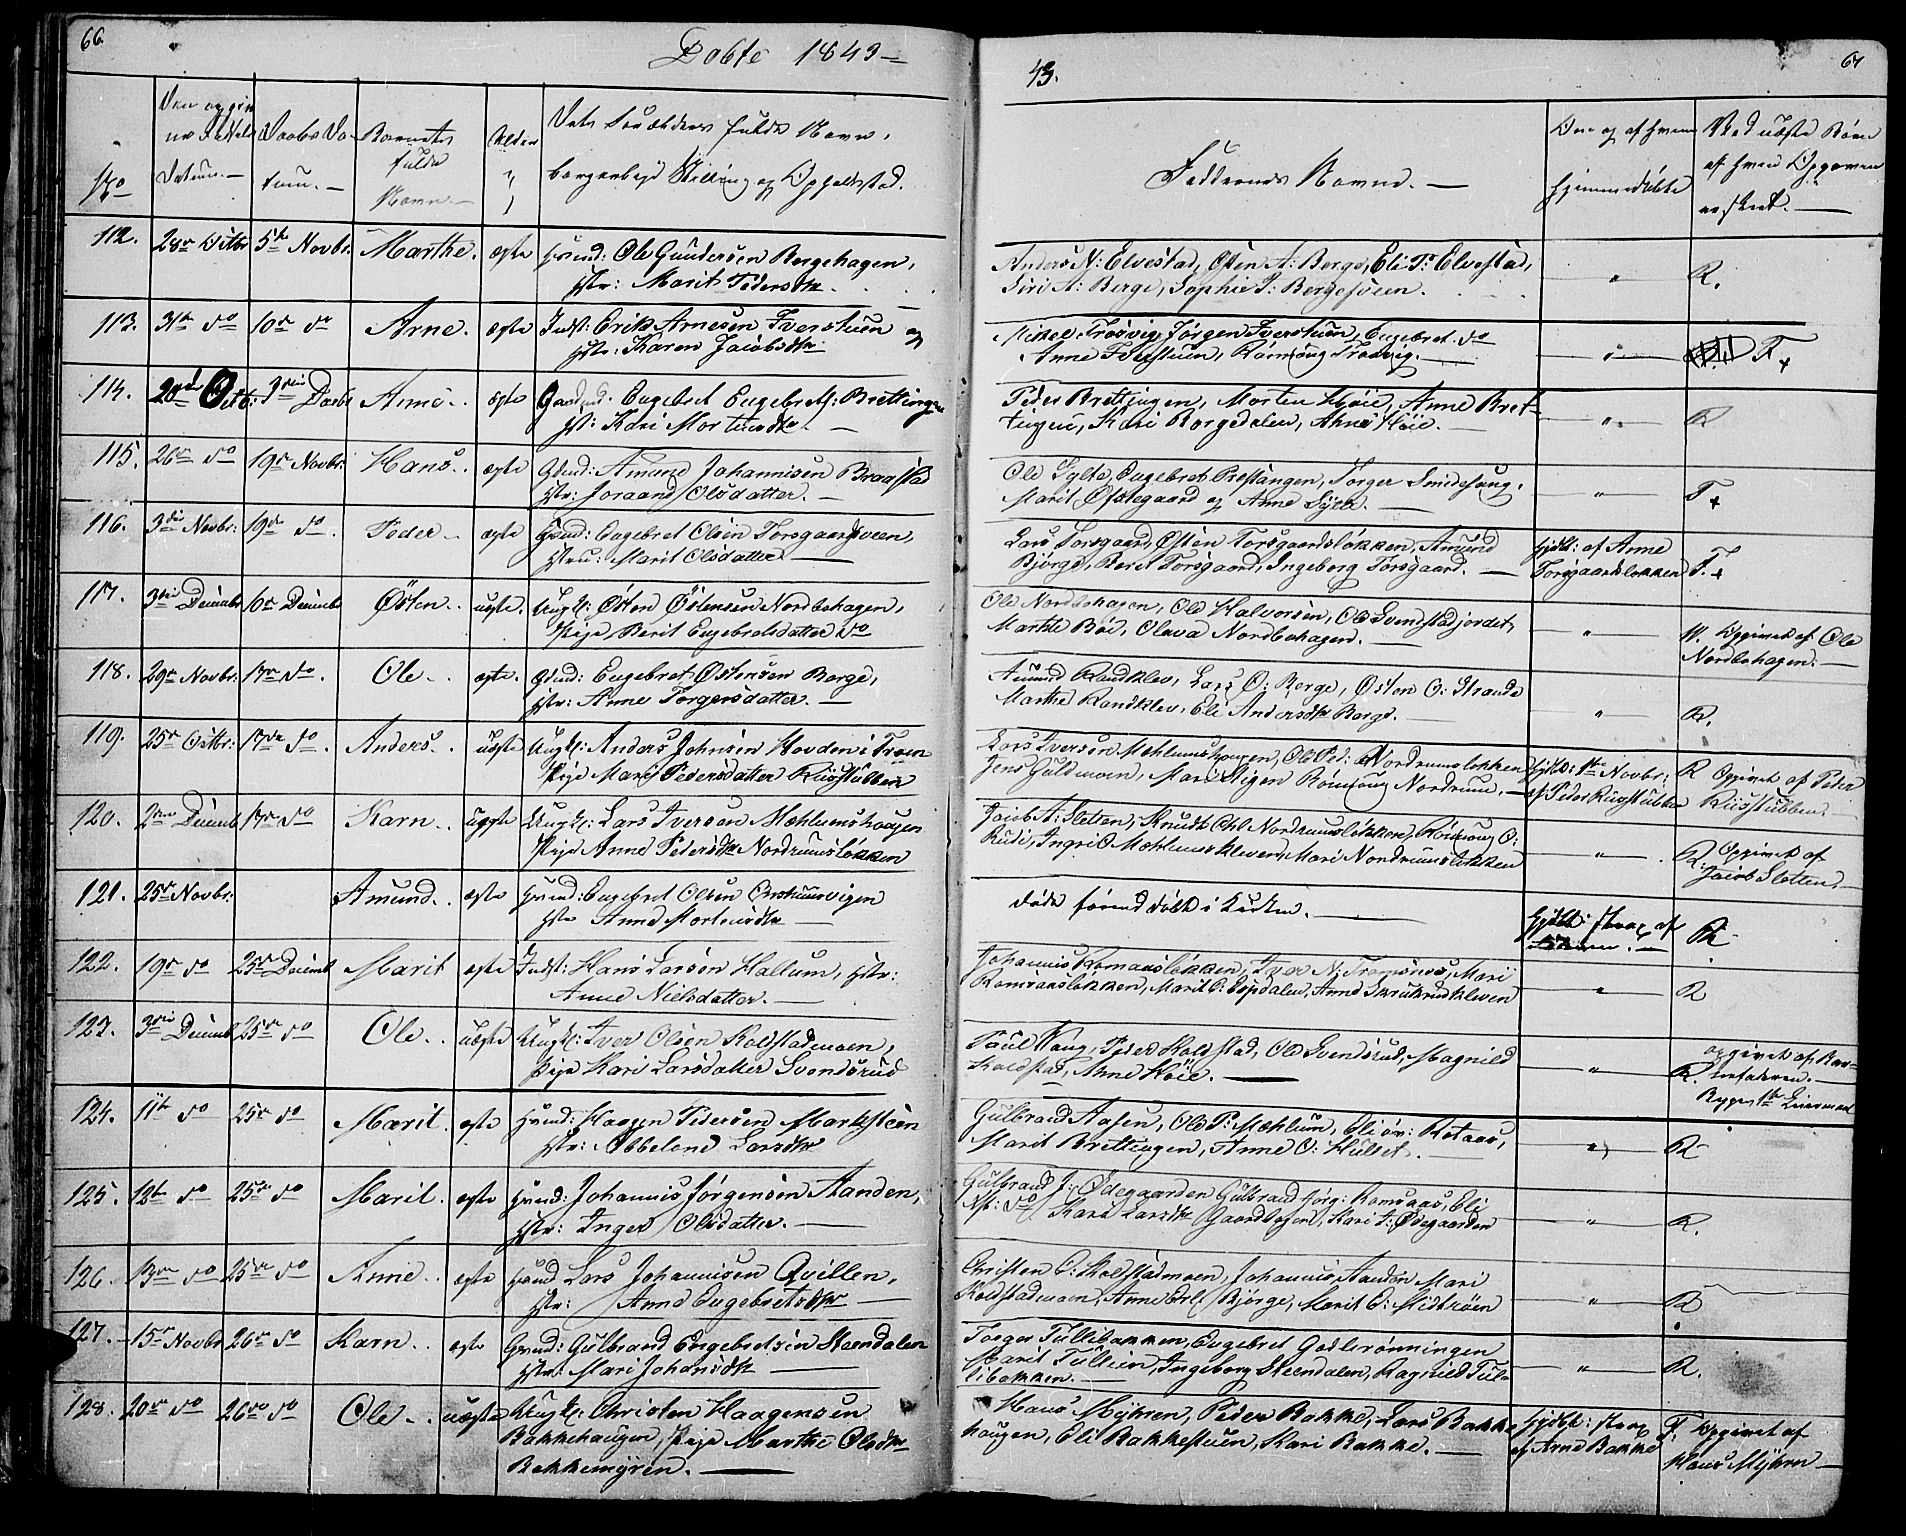 66.
Døbte 1843
43.
67
No
Datum.
Daabs Da-
tum.
Barnets
fulde
Navn.
Ældre
fulde Navn,
borgerlige Stilling og Opholdsted.
Faddernes Navne.
hjemmedøbte
112. 28de Octbr 5te Novbr. Marthe. ægte Huusmd: Ole Gundersen Bergehagen,
Hstr: Marit Pedersdtr.
Anders N: Elvestad, Østen A: Berge, Eli P: Elvestad,
Siri A: Berge, Sophie P: Bergesveen. " R.
113. 31te do 10de do Arne. ægte Indst: Erik Arnesen Iverstuen og
Hstr: Karen Jacobsdtr
Mikkel Trosvig, Jørgen Iverstuen, Engebret do
Anne Iverstuen, Rønnoug Trosvig. " F+
114. 20de Octb: 3die Decbr Anne. ægte Gaardmd. Engebret Engebrets: Brettingen
Hst: Kari Mortensdtr
Peder Brettingen, Morten Høie, Anne Bret-
tingen, Kari Borgedalen, Anne Høie. " R
115. 26de do 19de Novbr: Hans. ægte Gbmd: Amund Johannesen Braastad
Hstr: Joraand Olsdatter.
Ole Gylte, Engebret Prestangen, Torger Smidesang,
Marit Ofstegaard og Anne Gylte. " F+
116. 3die Novbr: 19de do. Peder ægte Husmd: Engebret Olsen Torsgaardsveen,
Hstru: Marit Olsdatter
Lars Torsgaard, Østen Torsgaardsløkken, Amund
Bjørge, Berit Torsgaard, Ingeborg Torsgaard.
Hjdbt: af Anne
Torsgaardsløkken F.+
117. 3die Decembr 6te Decembr Østen. uægte. Ungk: Østen Østensen Nordbohagen,
Pige Berit Engebretsdatter do
Ole Nordbohagen, Ole Halvorsen, Ole Svendstadjordet,
Marthe Bøe, Olava Nordbohagen. " Opgivet af Ole
Nordbohagen.
118. 29de Novbr: 17de do. Ole. ægte. Gbmd: Engebret Østensen Berge,
Hstr: Anne Torgersdatter.
Amund Randklev, Lars O: Berge, Østen O: Strande
Marthe Randklev, Eli Andersdtr Berge. " R.
119. 25de Octbr: 17de do. Anders. uægte Ungk: Anders Johnsen Hovden i Troen
Pige Mari Pedersdatter Rugstubben
Lars Iversen Mæhlumshaugen, Ole Ped: Nordrumsløkken
Jens Guldmoen, Mari Stigen Rønnoug Nordrum.
Hjdbt: 1ste Novbr:
af Peder Rugstubben R Opgivet af Peder
Rugstubben.
120. 2den Decemb 17de do Karn. uægte Ungk: Lars Iversen Mæhlumshaugen
Pige Anne Pedersdtr Nordrumsløkken
Jacob A: Sletten, Knudt Chl Nordrumsløkken, Rønnoug O:
Rudi, Ingri O Mæhlumskleven, Mari Nordrumsløkken " R: Opgivet af
Jacob Sletten.
121. 25de Novbr: Amund. ægte Husmd: Engebret Olsen Onstumsvigen
Hstr Anne Mortensdtr
døde førend døbt i Kirken. R
122. 19de do 25de Decemb Marit ægte Indst: Hans Larsen Hallum, Hstr:
Anne Nielsdatter.
Johannes Romsaasløkken, Iver N: Tromsnes, Mari
Romsaasløkken, Marit O: Espdalen, Anne Skrukrudkleven " R
123. 3die Decemb 25de do Ole. uægte Ungk: Iver Olsen Kolstadmoen,
Pige Kari Larsdatter Svendsrud
Paul Vang, Peder Kolstad, Ole Svendsrud, Magnild
Kolstad, Anne Høie. " R. opgivet af Bar-
nefaderen.
124. 11te do 25de do Marit. ægte Husmd: Haagen Pedersen Marksteen
Hstr: Abbelone Larsdtr
Gulbrand Aasen, Ole P: Mæhlum, Eli Rotaas,
Marit Brettingen, Anne O: Hulset. " R
125. 12te do 25de do Marit. ægte Husmd: Johannes Jørgensen Aanden,
Hstr: Inger Olsdatter.
Gulbrand J: Ødegaarden Gulbrand Jørg: Romsaas, Eli
do Kari Larsdtr Kari J: Ødegaarden " R.
126. 13de do 25de do Anne. ægte Husmd Lars Johannesen Qvillen,
Hstr: Anne Engebretsdtr
Christen O: Kolstadmoen, Johannes Aanden Mari
Kolstadmoen, Anne Erl: Bjørge, Marit O: Midtrøen " R
127. 15de Novbr 26de do Karn. ægte Husmd: Gulbrand Engebretsen Steendalen
Hstr: Mari Johansdtr
Torger Tullibakken, Engebret Godlirønningen
Marit Tullien, Ingeborg Steendalen, Ragnild Tul-
libakken. " R.
128. 20de do 26de do Ole. uægte Ungk: Christen Haagensen
Bakkehaugen, Pige Marthe Olsdtr
Bakkemyren.
Hans Myhren, Peder Bakke, Lars Bakke-
haugen, Eli Bakkestuen, Kari Bakke.
Hjdbt: strax
af Arne Bakke F. Opgivet af
Hans Myhren